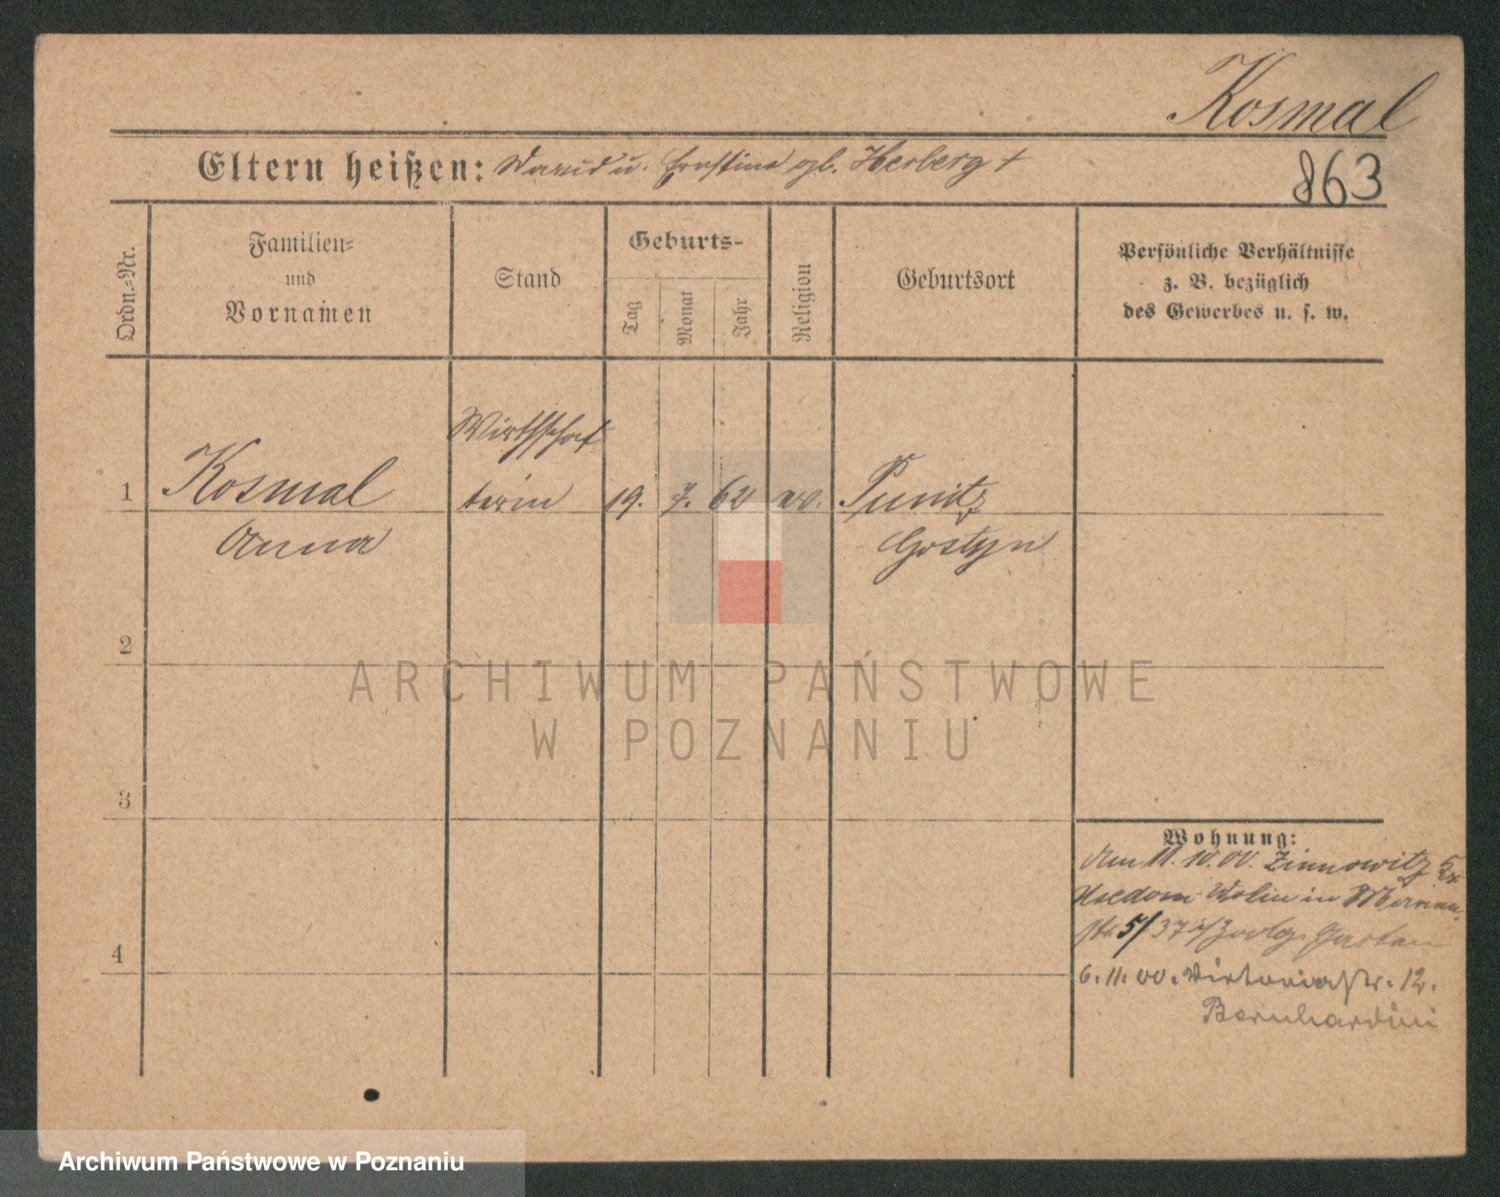 Kosmal
Eltern heißen: David u. Ernstine geb. Herberg †
863
Ordn.=Nr.
Familien=
und
Vornamen
Stand
Geburts-
Tag
Monat
Jahr
Religion
Geburtsort
Persönliche Verhältnisse
z. B. bezüglich
des Gewerbes u. s. w.
Wirthschaf
1 Kosmal terin 19. 7. 62 ev. Punitz
Anna Gostyn
2
3
4
Wohnung:
Am 11. 10. 00. Zinnowitz
Usedom Wolin in
5/37
6. 11. 00. Victoriastr. 12.
Bernhardini
ARCHIWUM PAŃSTWOWE
W POZNANIU
Archiwum Państwowe w Poznaniu